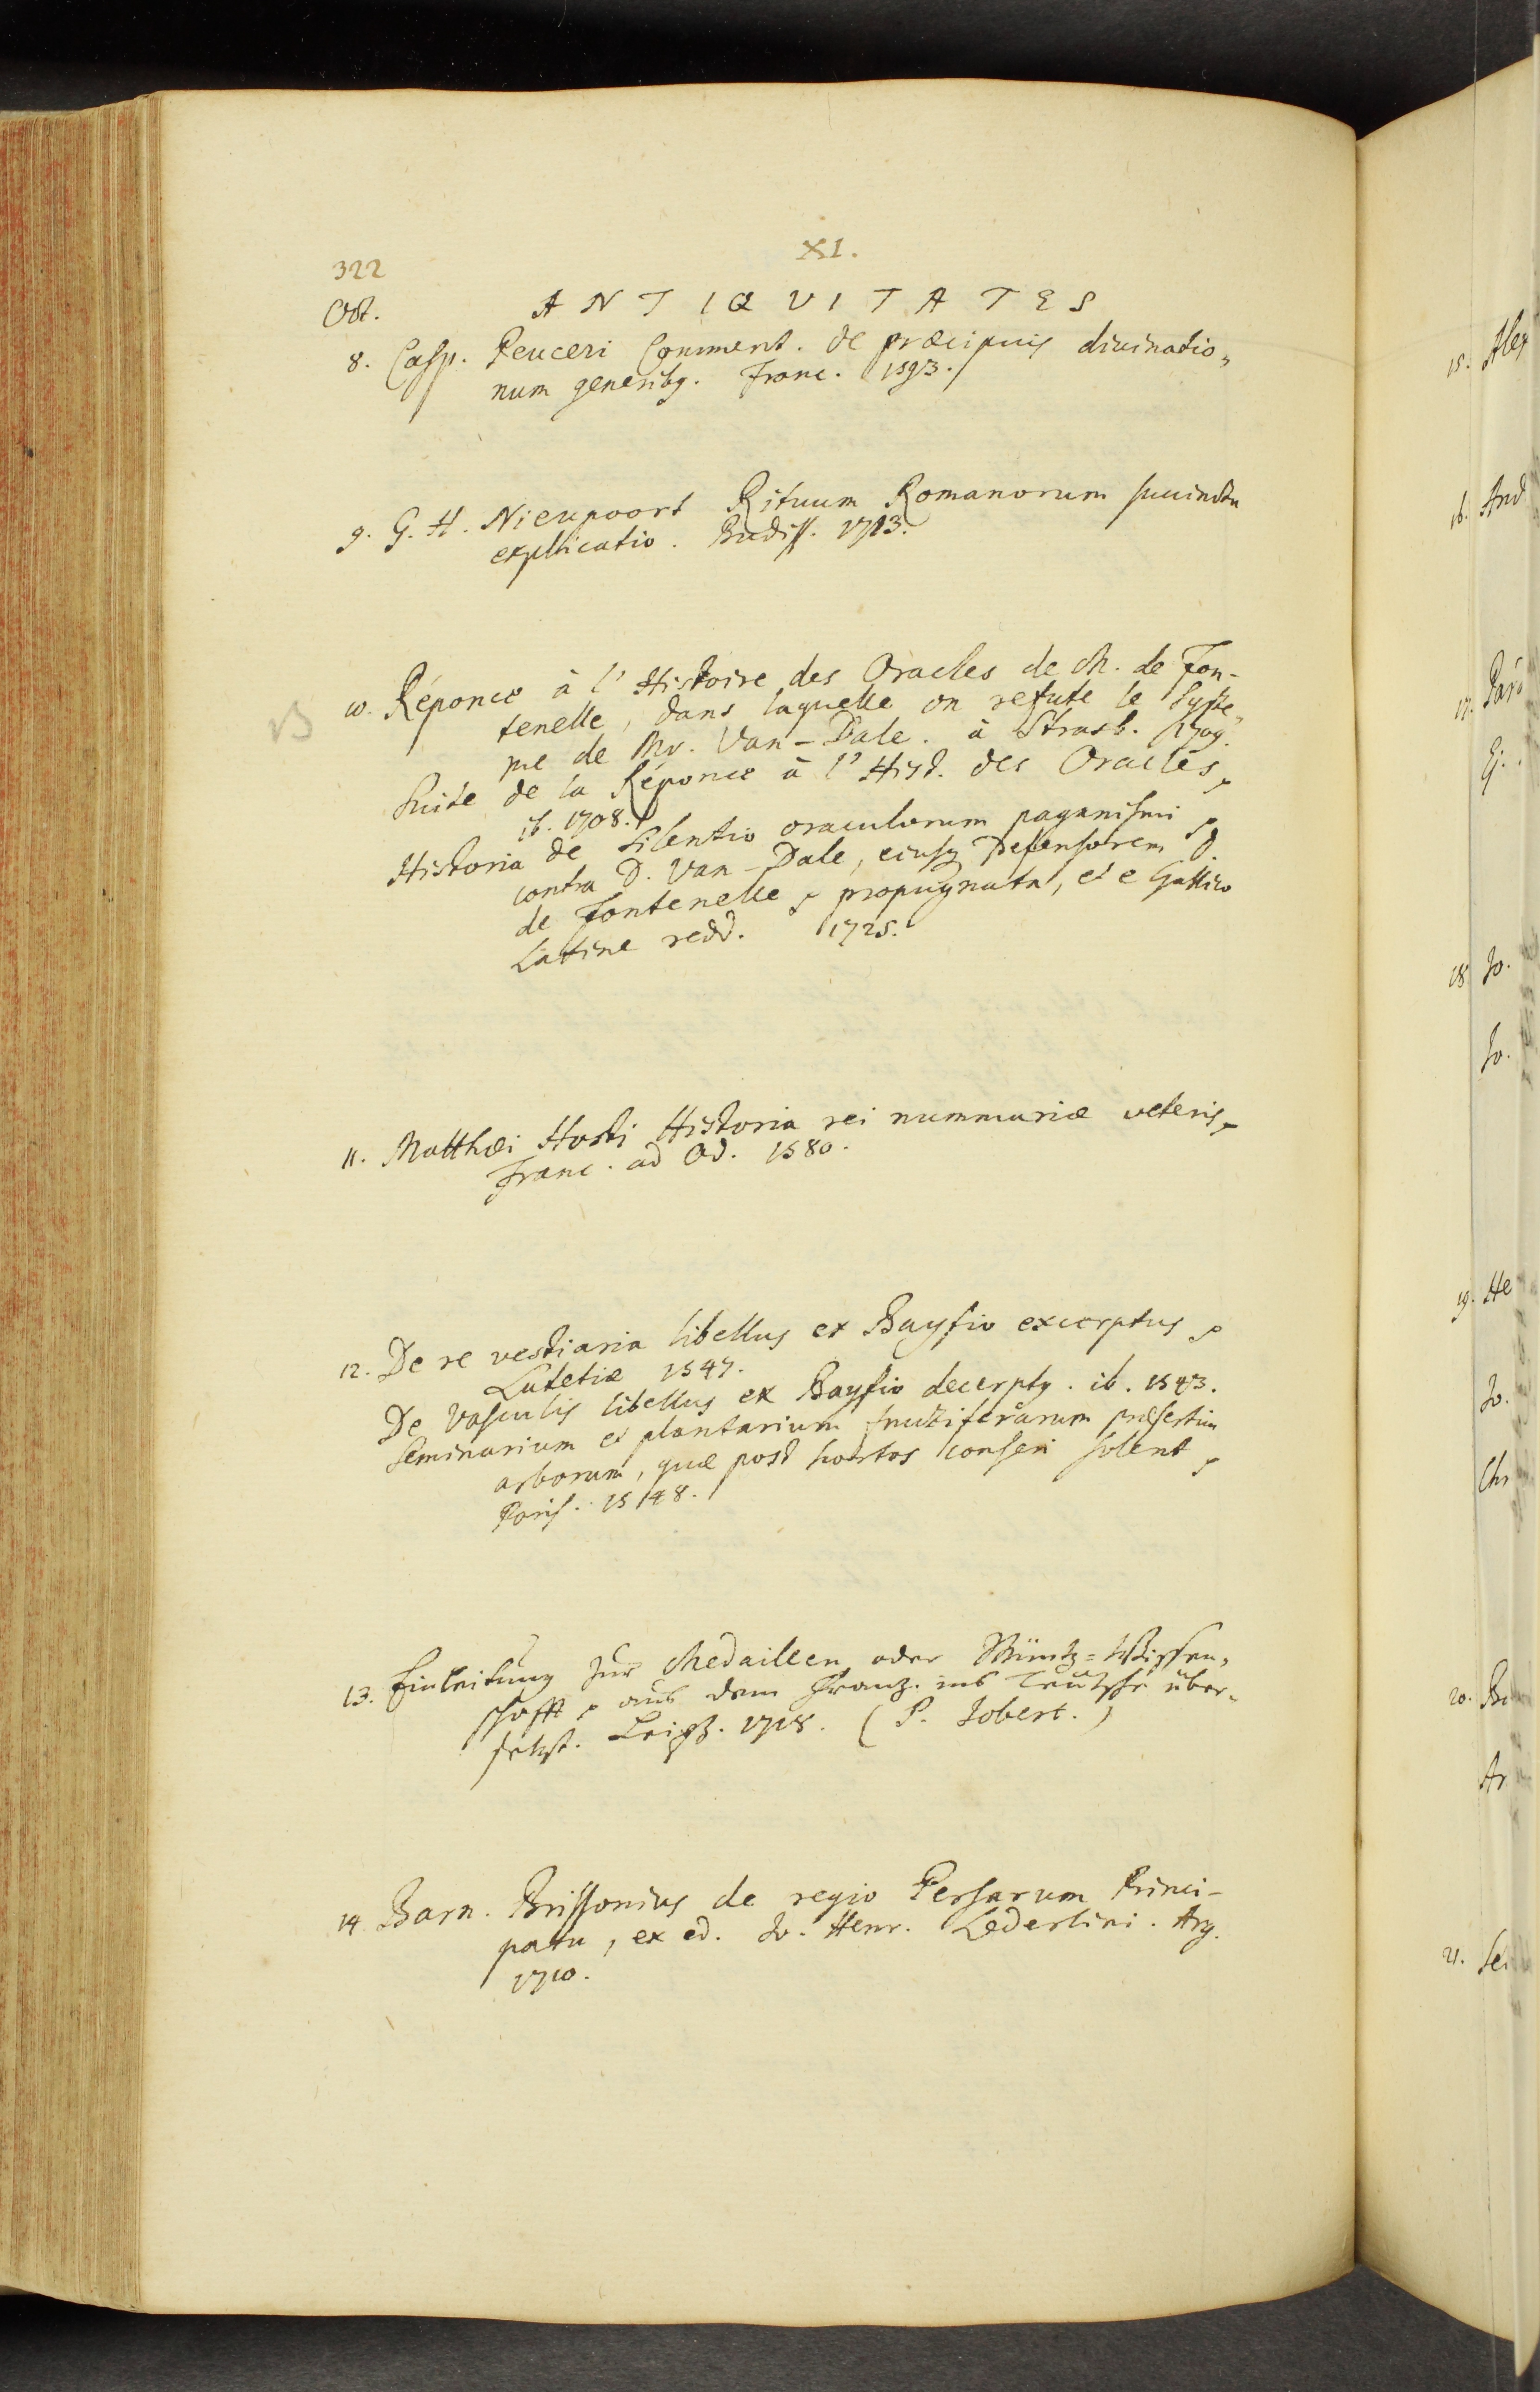 322
XI.
Oct.
ANTIQVITATES
8. Casp. Peuceri Comment. de præcipuis diuinatio„
num generibq. Franc. 1593.
9. G. H. Nieupoort Rituum Romanorum succincta
explicatio. Budiss. 1723.
B
10. Réponce à l'Histoire des Oracles de M. de Fon-
tenelle, dans laquelle on refute le Syste„
me de Mr. Van-Dale. à Strasb. 1709.
Suite de la Réponce à l'Hist. des Oracles
ib. 1708.
Historia de Silentio oraculorum paganismi
contra D. Van-Dale, eiusq Defensorem D.
de Fontenelle propugnata, et e Gallico
Latine redd. 1725.
11. Matthæi Hosti Historia rei nummariæ veteris
Franc. ad Od. 1580.
12. De re vestiaria libellus ex Bayfio excerptus
Lutetiæ 1547.
De Vasculis libellus ex Bayfio decerptq. ib. 1543.
Seminarium et plantarium fructiferarum præsertim
arborum, quæ post hortos conseri solent
Paris. 1548.
13. Einleitung zur Medaillen oder Müntz=Wissen„
schafft aus dem Franz. ins Teutsche über„
setzt. Leipz. 1718. (P. Jobert.)
14. Barn. Brissonius de regio Persarum Princi-
patu, ex ed. Jo. Henr. Lederlini. Arg.
1710.
15. Alex
16. And
17.
Ej.
18. Jo.
Jo.
19. He
Jo.
Chr
20.
Ar
21.